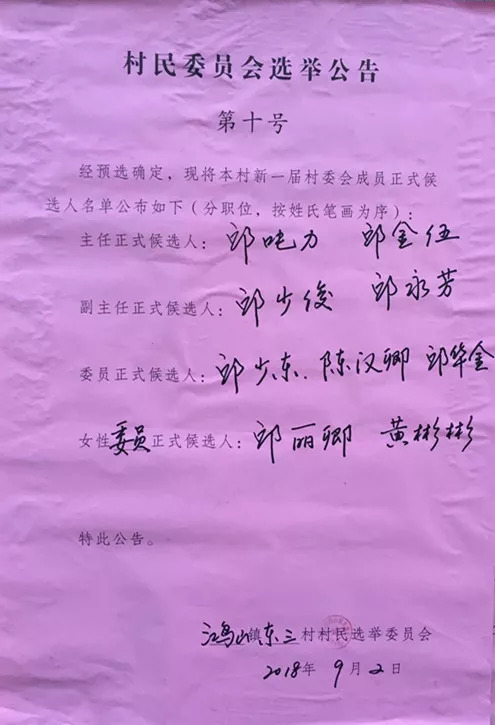 村民委员会选举公告
第十号
经预选确定,现将本村新一届村委会成员正式候
选人名单公布如下(分职位,按姓氏笔画为序):
主任正式候选人:邱吨力 邱金伍
副主任正式候选人:邱少俊 邱永芳
委员正式候选人:邱少东、陈汉卿 邱华金
女性委员正式候选人:邱丽卿 黄彬彬
特此公告。
鸿山镇东三村村民选举委员会
2018年9月2日